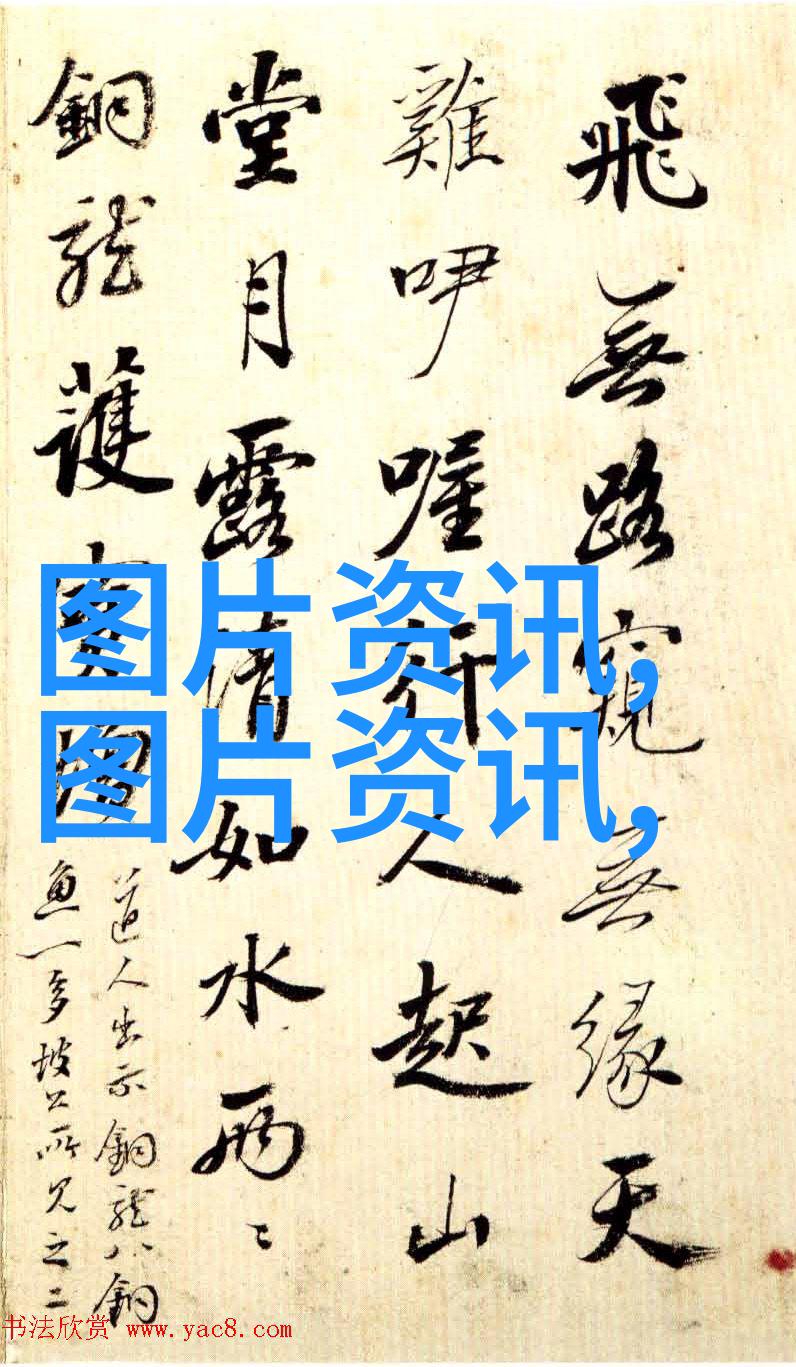 飛無路窺無緣天
雞咿喔行人起山
堂月露清如水兩〻
銅龍護
道人出示銅龍八銅
魚一多坡公所見之二
图片资讯,
图片资讯,
书法欣赏 www.yac8.com